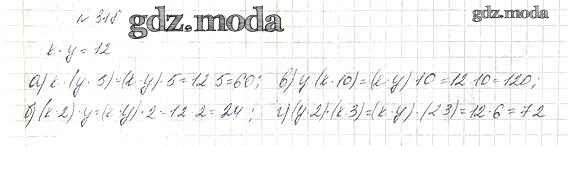 № 315 gdz.moda
gdz.moda
x · y = 12
а) x · (y · 5) = (x · y) · 5 = 12 · 5 = 60; в) y · (x · 10) = (x · y) · 10 = 12 · 10 = 120;
б) (x · 2) · y = (x · y) · 2 = 12 · 2 = 24; г) (y · 2) · (x · 3) = (x · y) · (2 · 3) = 12 · 6 = 72